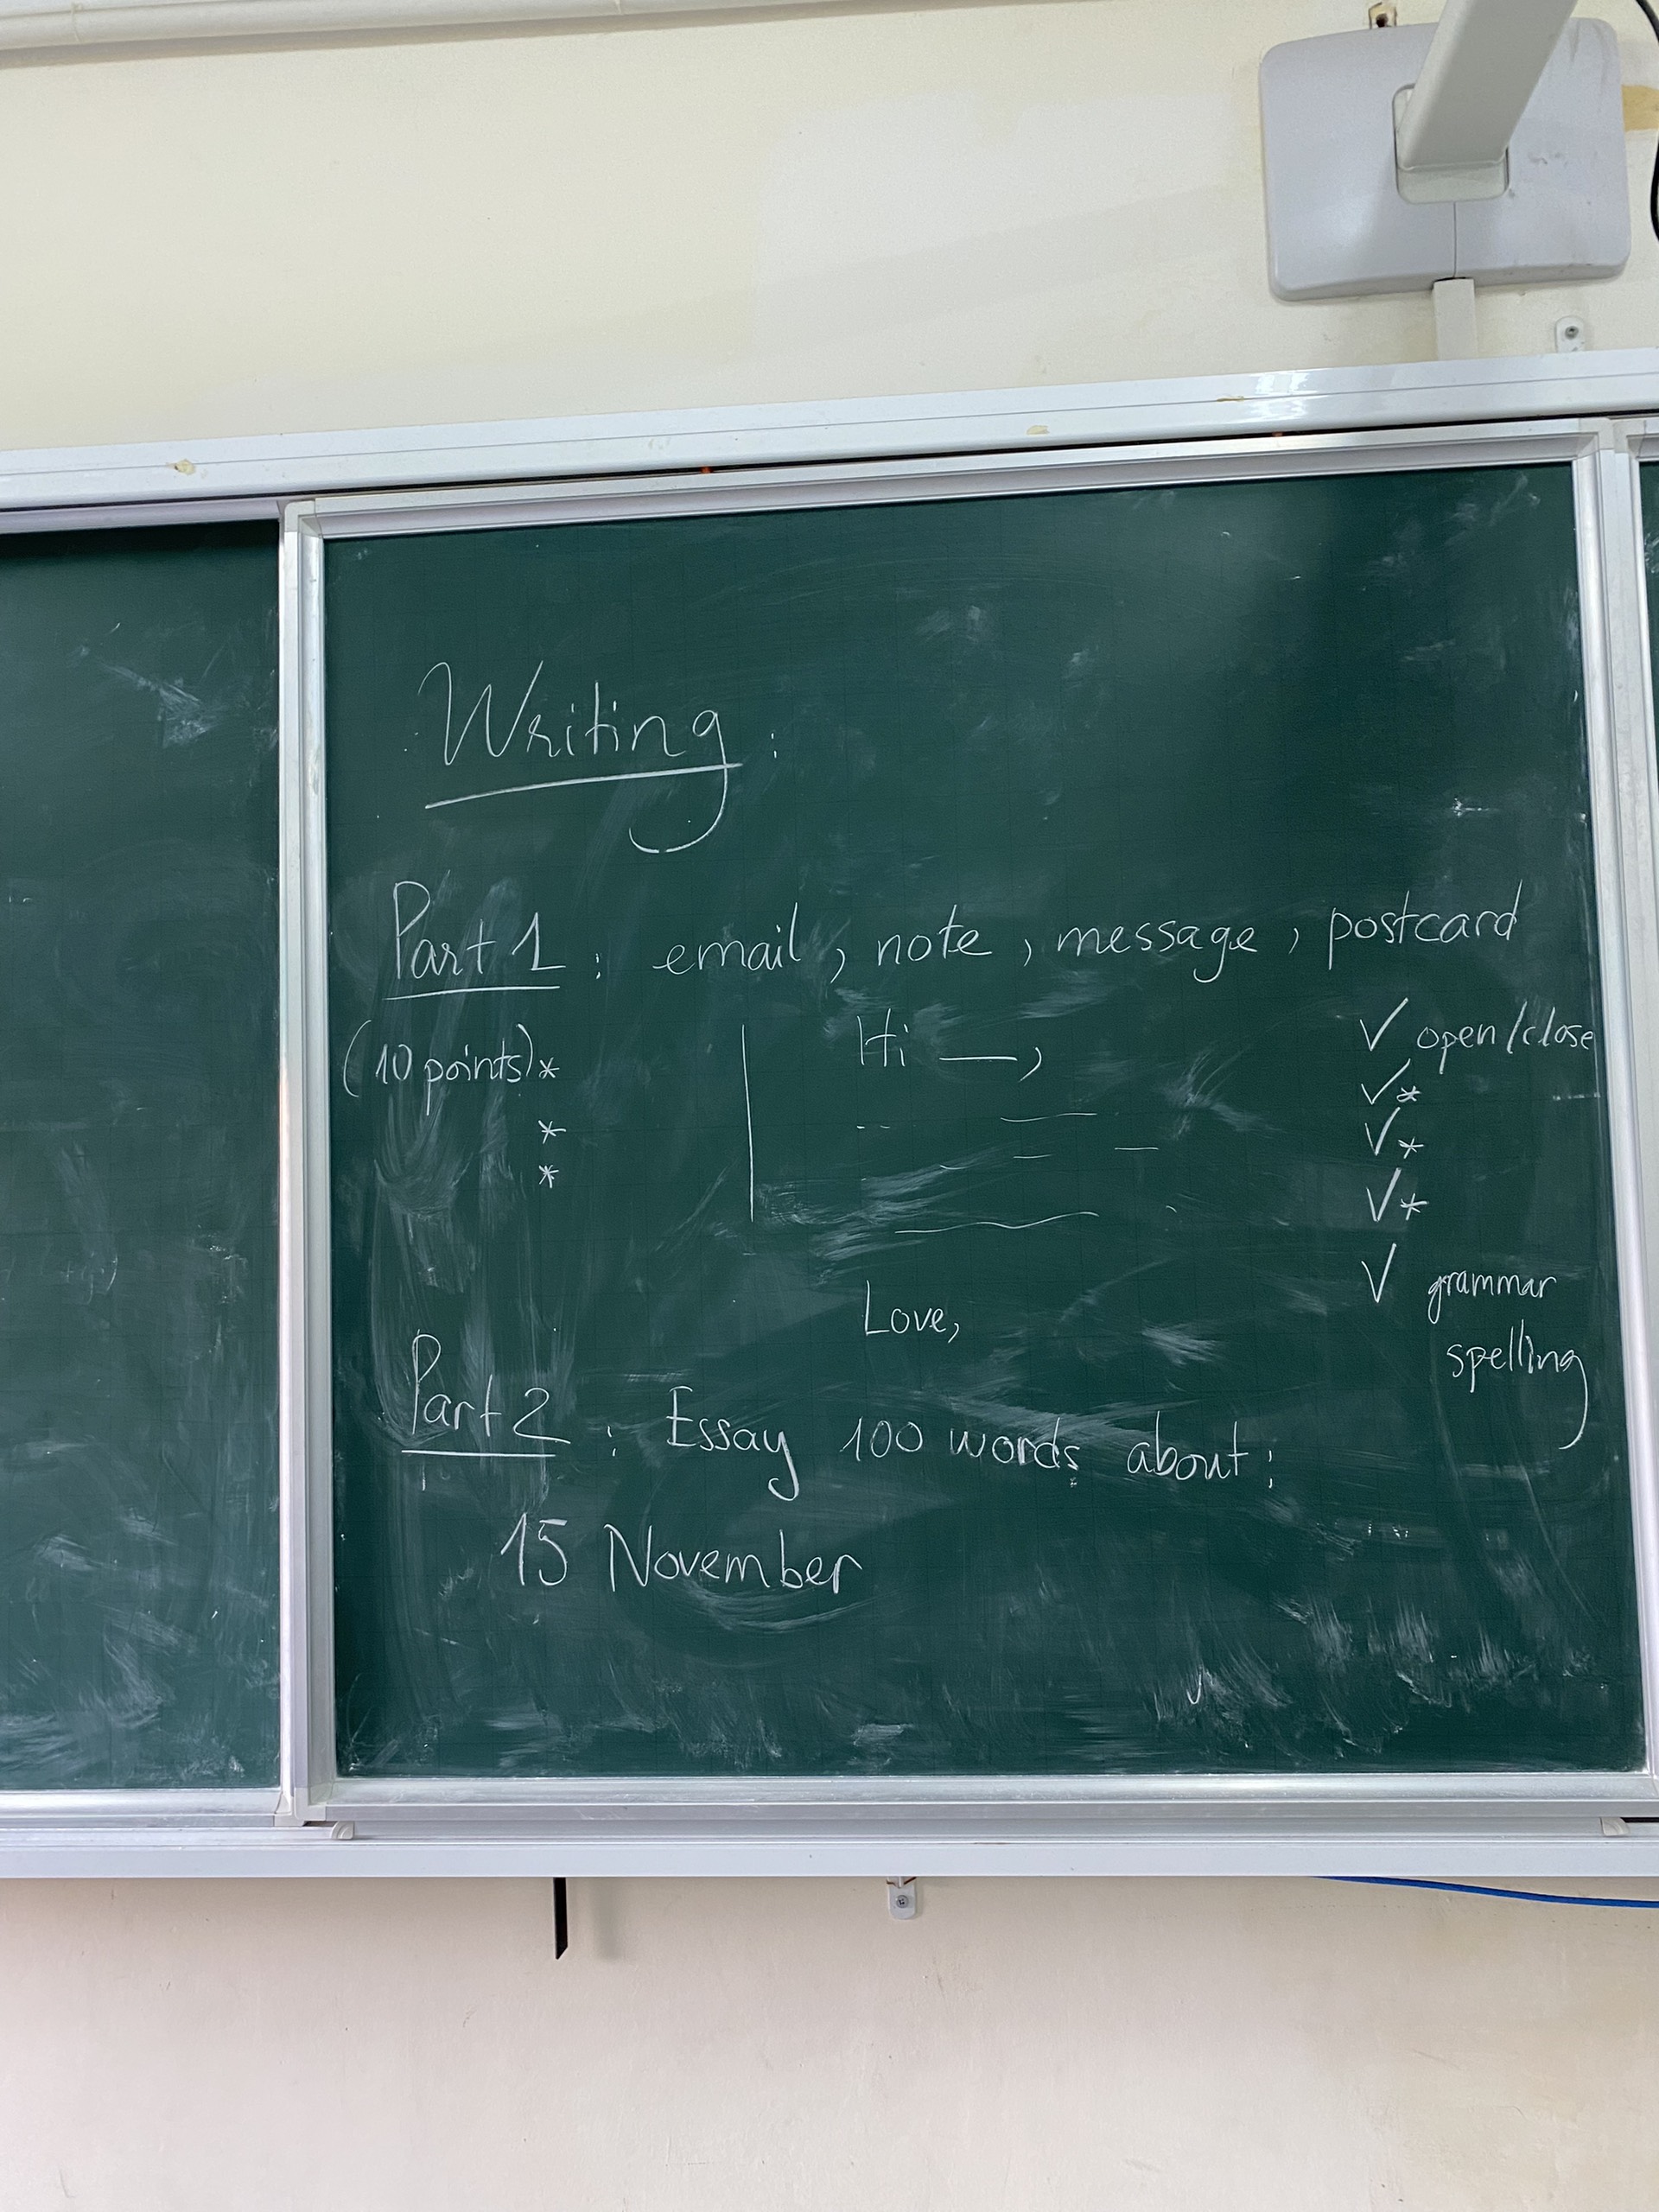 Writing:
Part 1: email, note, message, postcard
(10 points)*
*
*
Hi ___,
Love,
✓ open/close
✓*
✓*
✓*
✓ grammar
spelling
Part 2: Essay 100 words about:
15 November